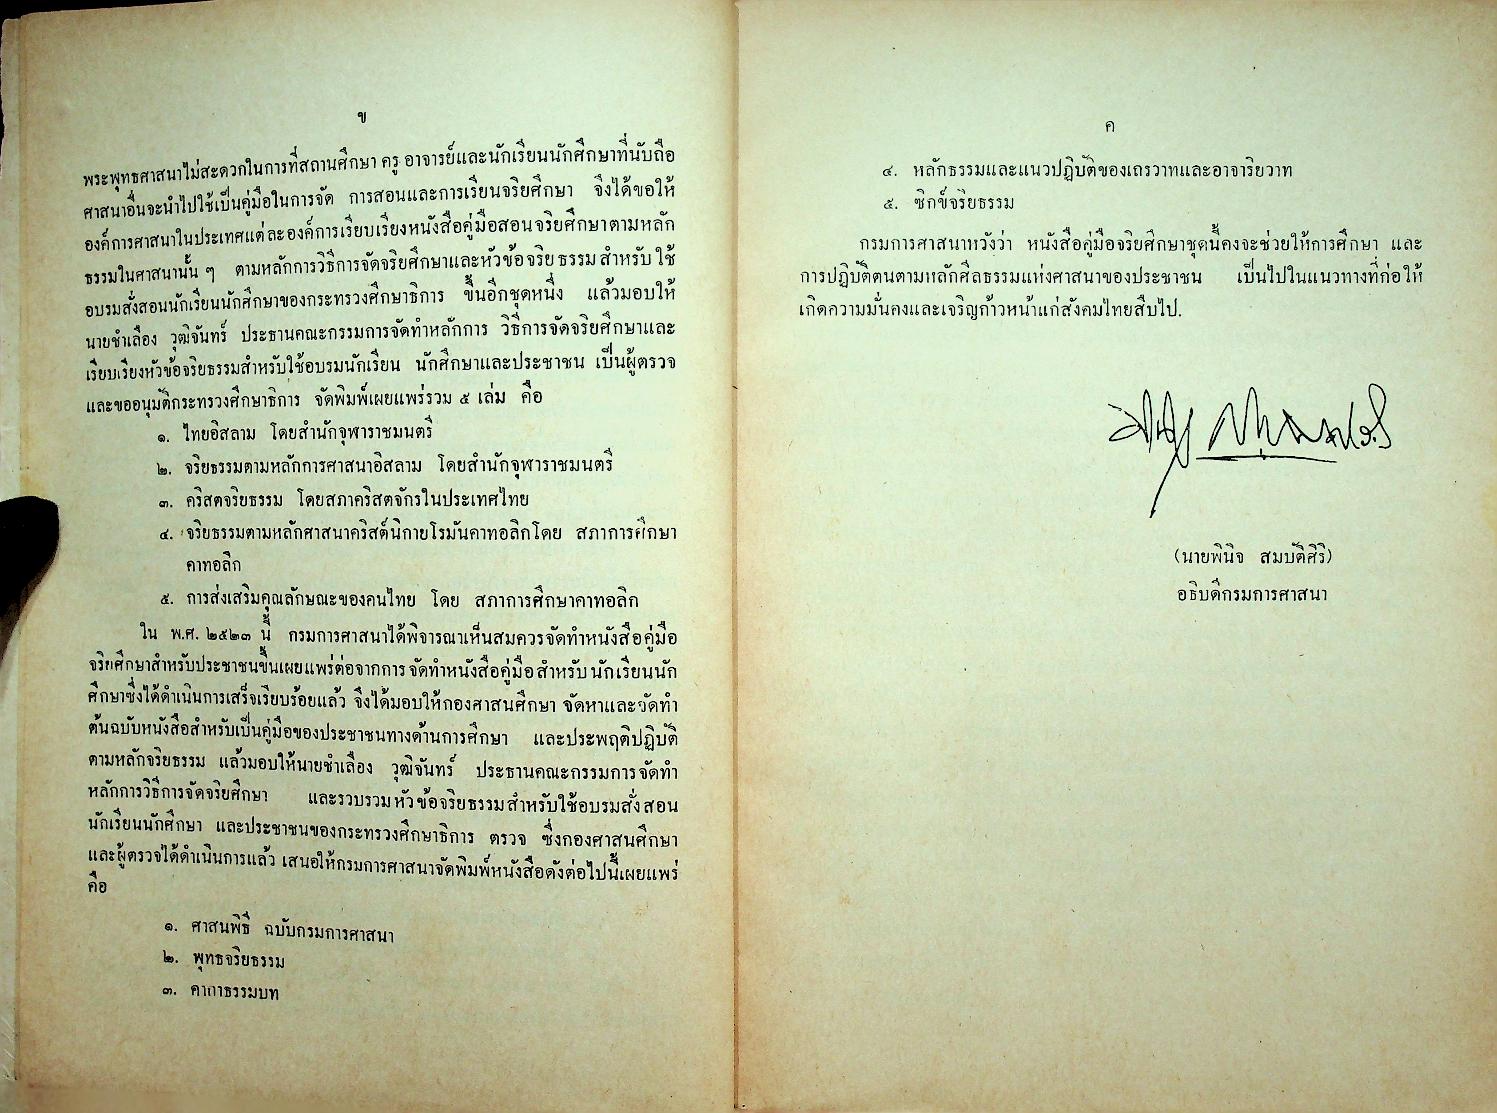 ข
พระพุทธศาสนาไม่สะดวกในการที่สถานศึกษา ครู อาจารย์และนักเรียนนักศึกษาที่นับถือ
ศาสนาอื่นจะนำไปใช้เป็นคู่มือในการจัด การสอนและการเรียนจริยศึกษา จึงได้ขอให้
องค์การศาสนาในประเทศแต่ละองค์การเรียบเรียงหนังสือคู่มือสอนจริยศึกษาตามหลัก
ธรรมในศาสนานั้น ๆ ตามหลักการวิธีการจัดจริยศึกษาและหัวข้อจริยธรรมสำหรับใช้
อบรมสั่งสอนนักเรียนนักศึกษาของกระทรวงศึกษาธิการ ขึ้นอีกชุดหนึ่ง แล้วมอบให้
นายชำเลือง วุฒิจันทร์ ประธานคณะกรรมการจัดทำหลักการ วิธีการจัดจริยศึกษาและ
เรียบเรียงหัวข้อจริยธรรมสำหรับใช้อบรมนักเรียน นักศึกษาและประชาชน เป็นผู้ตรวจ
และขออนุมัติกระทรวงศึกษาธิการ จัดพิมพ์เผยแพร่รวม ๕ เล่ม คือ
๑. ไทยอิสลาม โดยสำนักจุฬาราชมนตรี
๒. จริยธรรมตามหลักการศาสนาอิสลาม โดยสำนักจุฬาราชมนตรี
๓. คริสตจริยธรรม โดยสภาคริสตจักรในประเทศไทย
๔. จริยธรรมตามหลักศาสนาคริสต์นิกายโรมันคาทอลิกโดย สภาการศึกษา
คาทอลิก
๕. การส่งเสริมคุณลักษณะของคนไทย โดย สภาการศึกษาคาทอลิก
ใน พ.ศ. ๒๕๒๓ นี้ กรมการศาสนาได้พิจารณาเห็นสมควรจัดทำหนังสือคู่มือ
จริยศึกษาสำหรับประชาชนขึ้นเผยแพร่ต่อจากการจัดทำหนังสือคู่มือสำหรับนักเรียนนัก
ศึกษาซึ่งได้ดำเนินการเสร็จเรียบร้อยแล้ว จึงได้มอบให้กองศาสนศึกษา จัดหาและจัดทำ
ต้นฉบับหนังสือสำหรับเป็นคู่มือของประชาชนทางด้านการศึกษา และประพฤติปฏิบัติ
ตามหลักจริยธรรม แล้วมอบให้นายชำเลือง วุฒิจันทร์ ประธานคณะกรรมการจัดทำ
หลักการวิธีการจัดจริยศึกษา และรวบรวมหัวข้อจริยธรรมสำหรับใช้อบรมสั่งสอน
นักเรียนนักศึกษา และประชาชนของกระทรวงศึกษาธิการ ตรวจ ซึ่งกองศาสนศึกษา
และผู้ตรวจได้ดำเนินการแล้ว เสนอให้กรมการศาสนาจัดพิมพ์หนังสือดังต่อไปนี้เผยแพร่
คือ
๑. ศาสนพิธี ฉบับกรมการศาสนา
๒. พุทธจริยธรรม
๓. คาถาธรรมบท
ค
๔. หลักธรรมและแนวปฏิบัติของเถรวาทและอาจาริยวาท
๕. ซิกข์จริยธรรม
กรมการศาสนาหวังว่า หนังสือคู่มือจริยศึกษาชุดนี้คงจะช่วยให้การศึกษา และ
การปฏิบัติตนตามหลักศีลธรรมแห่งศาสนาของประชาชน เป็นไปในแนวทางที่ก่อให้
เกิดความมั่นคงและเจริญก้าวหน้าแก่สังคมไทยสืบไป.
(นายพินิจ สมบัติศิริ)
อธิบดีกรมการศาสนา